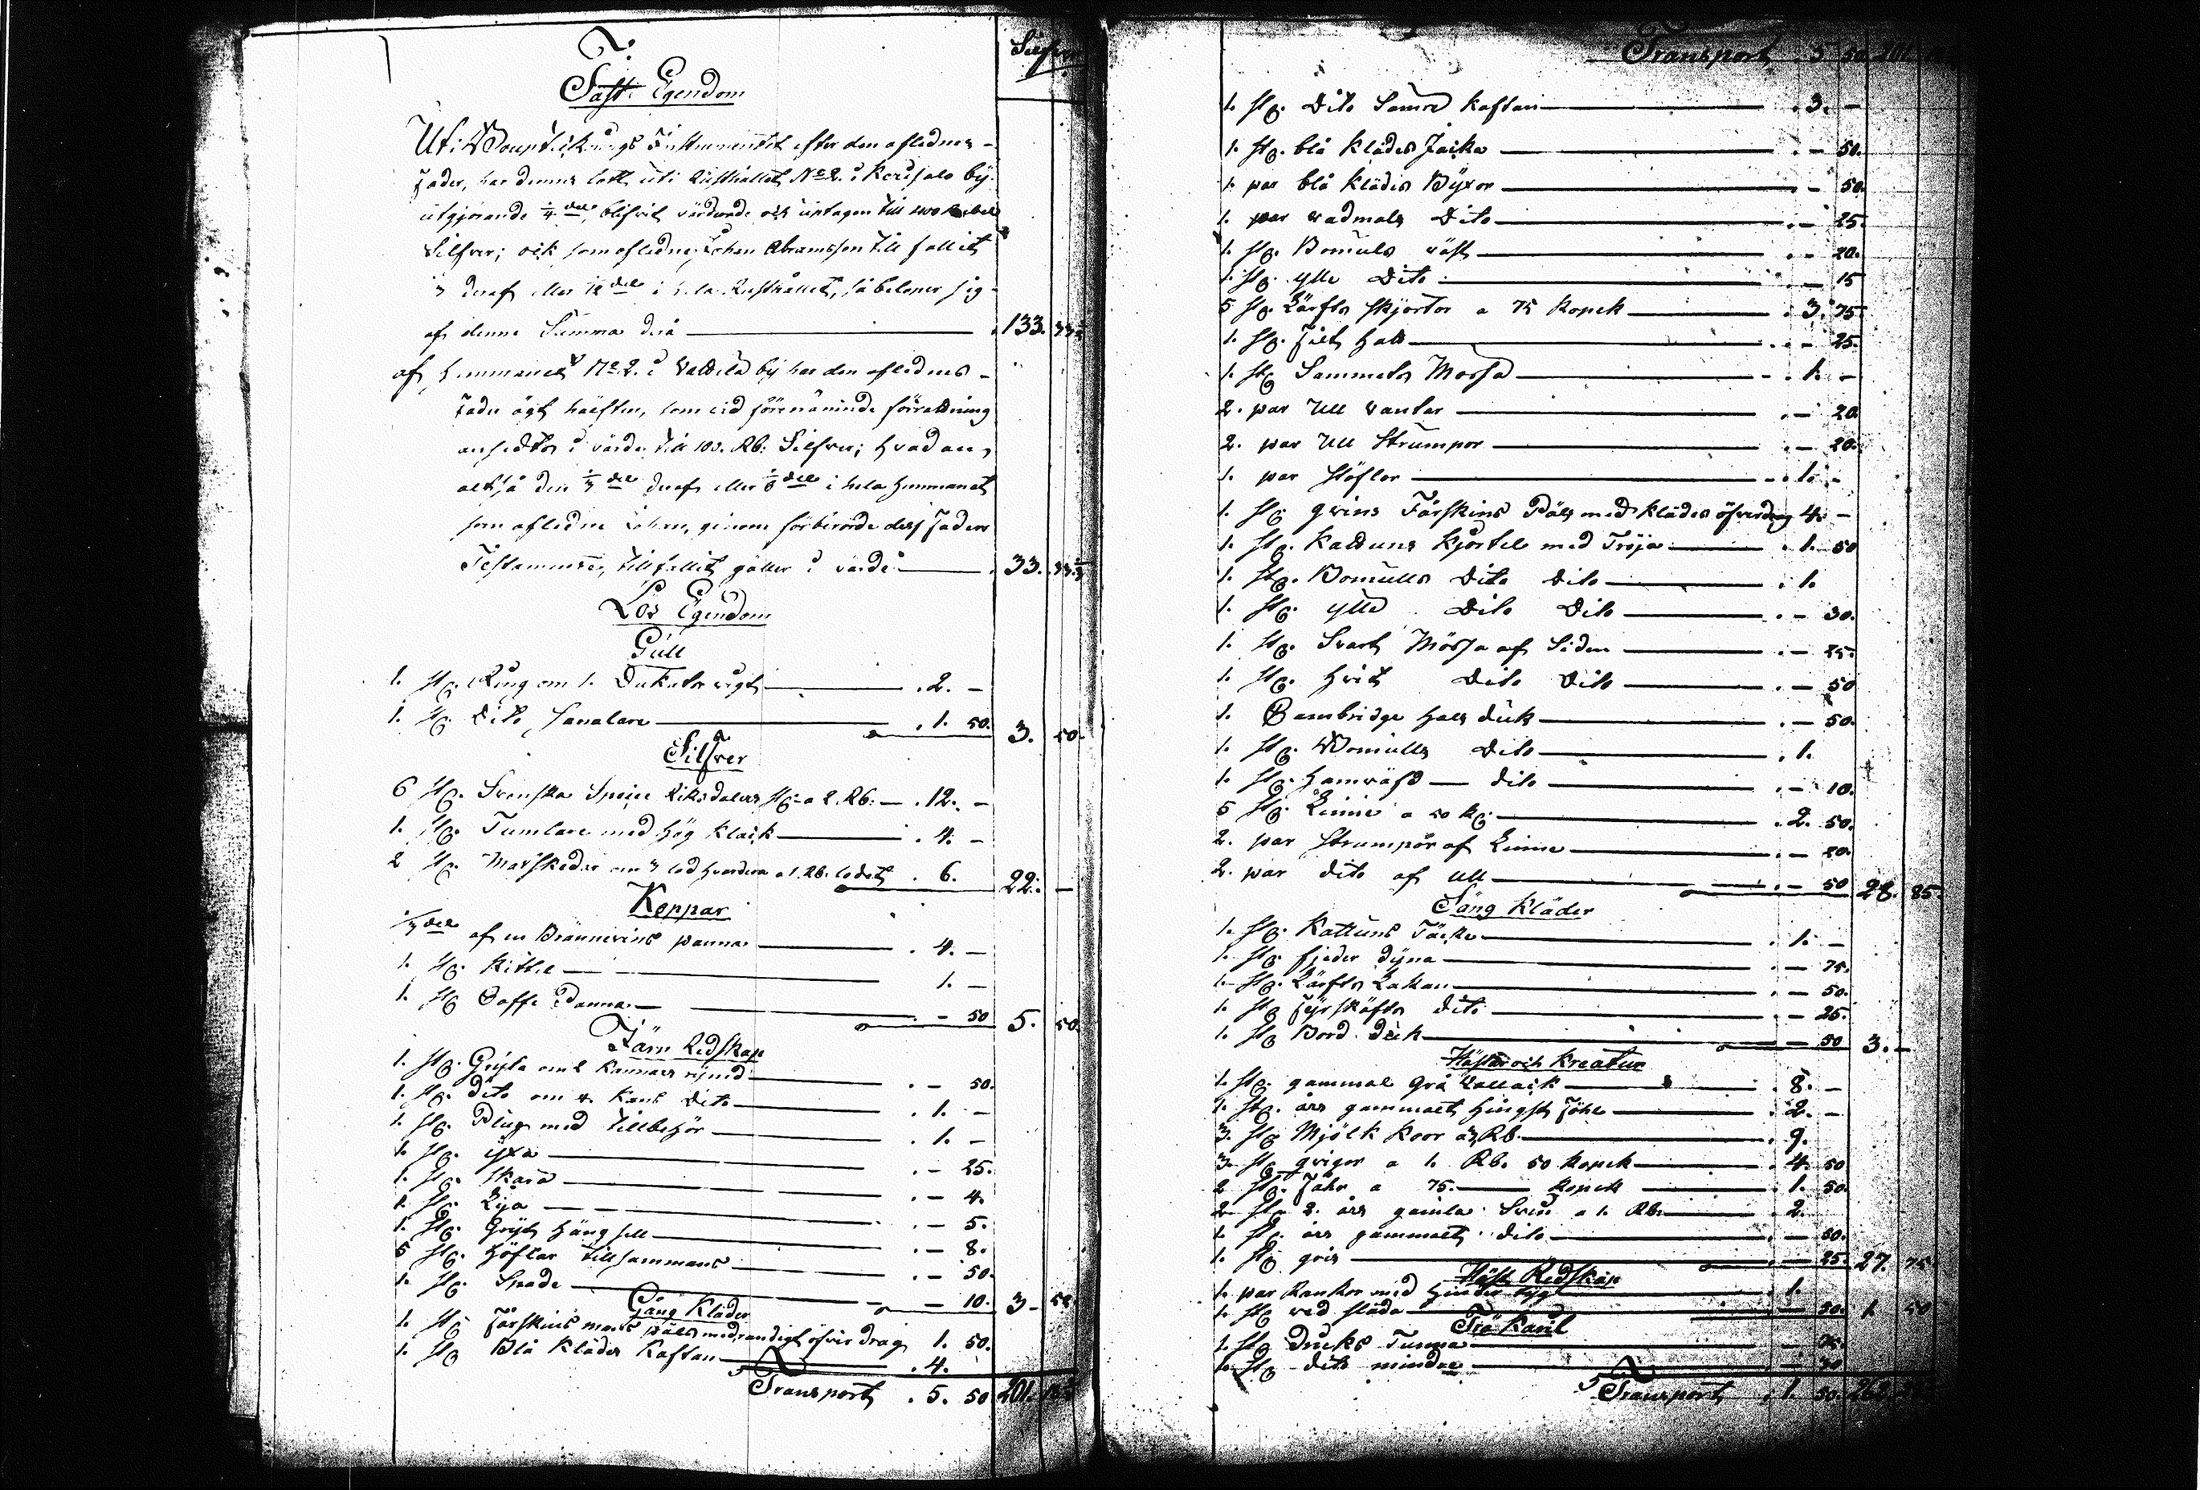 Silfver
Fast Egendom
Uti Boupteknings Instrumentet efter den aflednes
Fader, har dennes lott uti Rusthållet No 2. i Kerisalo by
utgjörande 1/4 del, blifvit värderade och uptagen till 400 Rubel
Silfver; och som afledne Johan Abramsson till fallit
1/3 deraf eller 12 del i hela Rusthållet, så beloper sig
af denne Summa derå 133. 33 1/3
af Hemmanet No 2. i Wattila by har den aflednes
Fader ägt hälften, som vid förenämnde förrättning
ansedtes i värde till 100. Rb: Silfver; hvadan
altså den 1/3 del deraf eller 1/6 del i hela Hemmanet
som aflednes Johan, genom förberörde dess Faders
Testamente, tillfallit gäller i värde 33. 33 1/3
Lös Egendom
Gull
1. st. Ring om 1. Dukaters vigt 2. -
1. st. Dito, smalare 1. 50. 3. 50.
Silfver
6 st. Svenska Specie Riksdalers st. a 2. Rb: 12. -
1. st. Tumlare med hög klack 4. -
2 st. Matskedar om 3 lod hvardera a 1. Rb. lodet 6. 22. -
Koppar
1/3 del af en Brännevins panna 4. -
1. st. Kittel 1. -
1. st. Caffe Panna - 50 5. 50.
Järn Redskap
1. st. Gryta om 2 Kannors rymd - 50.
1. st. dito om 4 Kans Dito 1. -
1. st. Plug med tillbehör 1. -
1. st. yxa - 25.
1. st. skära - 4.
1. st. Lija - 5.
1. st. Gryt Häng sell - 8.
5 st. Höflar tillsammans - 50.
1. st. Spade - 10. 3 - 52
Gång Kläder
1. st. Fårskins mans päls med randigt öfver drag 1. 50.
1. st. Blå Klädes Kaftan 4.
Transport 5. 50 201.
Transport 5 50 201
1. st. Dito Sämre kaftan 3. -
1. st. blå Klädes Jacka - 50.
1. par blå Klädes Byxor - 50.
1. par vadmals Dito - 25.
1. st. Bomuls väst - 20.
1. st. ylle Dito - 15
5 st. Lärfts Skjortor a 75 Kopek 3. 75
1. st. Filt Hatt - 25.
1. st. Sammets Mössa 1. -
2. par Ull vantar - 20
2. par Ull Strumpor - 20.
1. par Stöflor 1. -
1. st. qvins Fårskins Päls med klädes öfverdrag 4. -
1. st. Kattuns Kjortel med Tröja 1. 50
1. st. Bomulls Dito Dito 1.
1. st. ylle Dito Dito - 30.
1. st. Svart Mössa af Siden - 25.
1. st. Hvit Dito Dito - 50
1. Cambridge Hals duk - 50.
1. st. Bomulls Dito 1.
1. st. Hemväfd dito - 10.
5 st. Linne a 50 Kc 2. 50.
2. par Strumpor af Linne - 20.
2. par dito af Ull - 50 28. 85.
Säng Kläder
1. st. Kattuns Täcke 1. -
1. st. fjeder dyna - 75.
1. st. Lärfts Lakan - 50.
1. st. Fyrskäfts dito - 25.
1. st. Bord Duk - 50 3. -
Hästar och Kreatur
1. st. gammal Grå Vallack 8. -
1. st. års gammalt Hingst Föhl 2. -
3. st. Mjölk Koor a 3 Rb. 9.
3. st. qvigor a 1. Rb. 50 Kopek 4. 50
2 st. Fåhr a 75. Kopek 1. 50.
2 st. 2. års gamla Svin a 1. Rb. 2.
1. st. års gammalt dito - 50.
1. st. gris - 25. 27. 75.
Häst Redskap
1. par Rankor med Hinder tyg 1.
1. st. ved släda - 50. 1. 50
Trä Käril
1. st. Dricks Tunna - 75.
1. st. dito mindre
Transport 1. 50. 262.